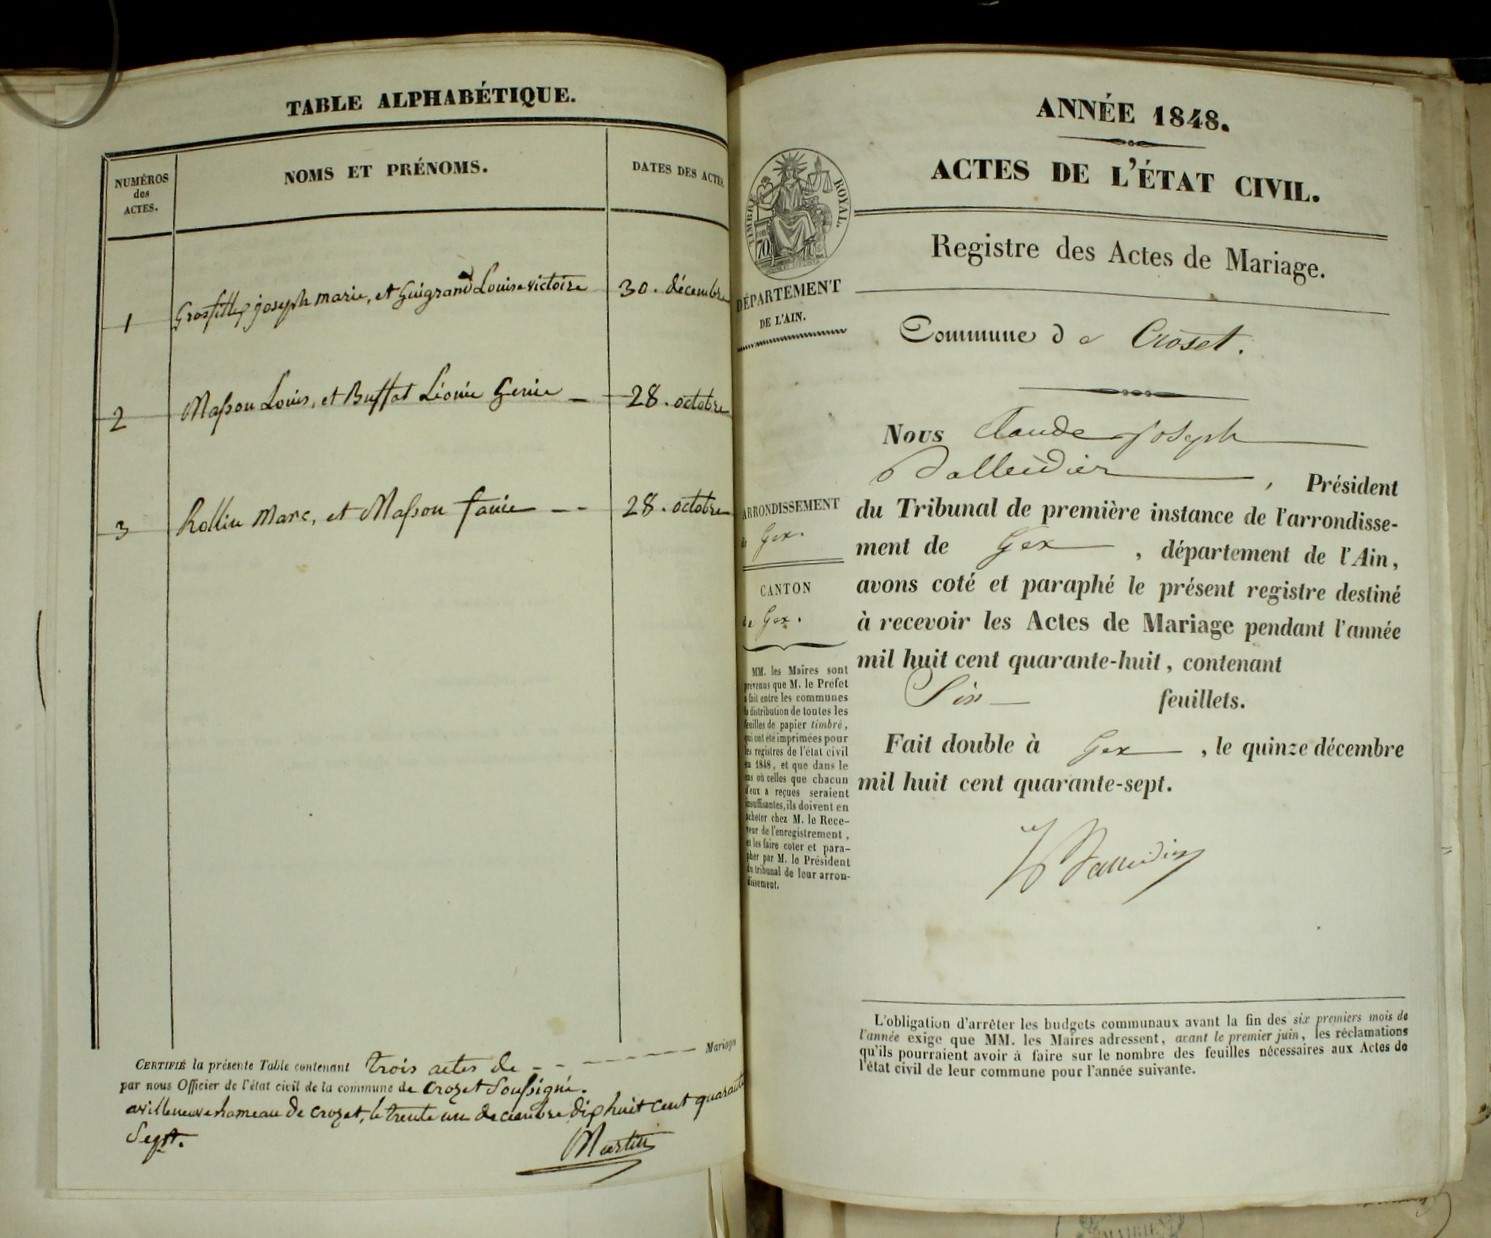 TABLE ALPHABÉTIQUE.
NUMÉROS
des
ACTES.
NOMS ET PRÉNOMS.
DATES DES ACTES.
1 Grosfilley joseph marie, et Guigrand Louise victoire 30. décembre
2 Masson Louis, et Buffat Léonie Genie 28. octobre
3 Rollin Marc, et Masson fanie 28. octobre
CERTIFIÉ la présente Table contenant trois actes de Mariage
par nous Officier de l'état civil de la commune de Crozet Soussigné.
a villeneuve hameau de Crozet, le trente un decembre dix huit cent quarante
Sept.
Martin
ANNÉE 1848.
ACTES DE L'ÉTAT CIVIL.
TIMBRE ROYAL.
70
DÉPARTEMENT
DE L'AIN.
Registre des Actes de Mariage.
Commune de Croset.
Nous Claude joseph
Balleidier, Président
du Tribunal de première instance de l'arrondisse-
ment de Gex, département de l'Ain,
avons coté et paraphé le présent registre destiné
à recevoir les Actes de Mariage pendant l'année
mil huit cent quarante-huit, contenant
Six feuillets.
Fait double à Gex, le quinze décembre
mil huit cent quarante-sept.
Balleidier
ARRONDISSEMENT
de Gex.
CANTON
de Gex.
MM. les Maires sont
prévenus que M. le Préfet
a fait entre les communes
la distribution de toutes les
feuilles de papier timbré,
qui ont été imprimées pour
les registres de l'état civil
en 1848, et que dans le
cas où celles que chacun
d'eux a reçues seraient
insuffisantes, ils doivent en
acheter chez M. le Rece-
veur de l'enregistrement,
et les faire coter et para-
pher par M. le Président
du tribunal de leur arron-
dissement.
L'obligation d'arrêter les budgets communaux avant la fin des six premiers mois de
l'année exige que MM. les Maires adressent, avant le premier juin, les réclamations
qu'ils pourraient avoir à faire sur le nombre des feuilles nécessaires aux Actes de
l'état civil de leur commune pour l'année suivante.